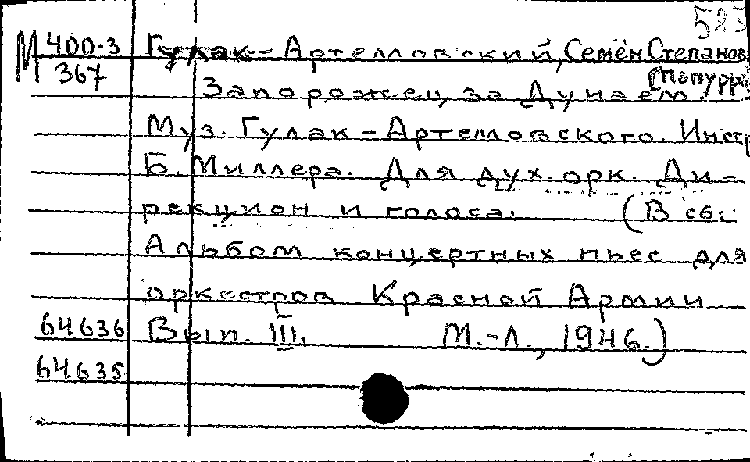 523
М 400-3 Гулак-Артемовский, Семён Степанов
367 (Попурри)
Запорожец за Дунаем.
Муз. Гулак-Артемовского. Инстр
Б. Миллера. Для дух. орк. Ди-
рекцион и голоса. (В сб.:
Альбом концертных пьес для
оркестров Красной Армии
64636 Вып. III. М.-Л., 1946.)
64635